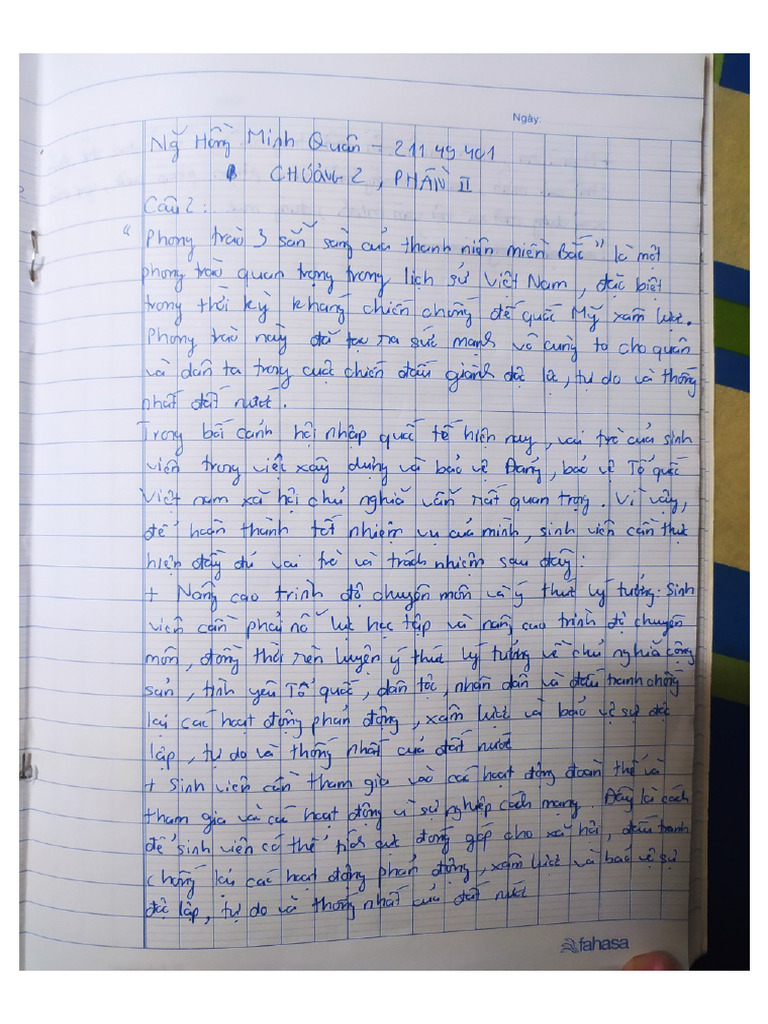 Ngày:
Ng̃ Hồng Minh Quân - 21149401
CHƯƠNG 2, PHẦN II
Câu 2:
"Phong trào 3 sẵn sàng của thanh niên miền Bắc" là một
phong trào quan trọng trong lịch sử Việt Nam, đặc biệt
trong thời kỳ kháng chiến chống đế quốc Mỹ xâm lược.
Phong trào này đã tạo ra sức mạnh vô cùng to cho quân
và dân ta trong cuộc chiến đấu giành độc lập, tự do và thống
nhất đất nước.
Trong bối cảnh hội nhập quốc tế hiện nay, vai trò của sinh
viên trong việc xây dựng và bảo vệ Đảng, bảo vệ Tổ quốc
Việt nam xã hội chủ nghĩa vẫn rất quan trọng. Vì vậy,
để hoàn thành tốt nhiệm vụ của mình, sinh viên cần thực
hiện đầy đủ vai trò và trách nhiệm sau đây:
+ Nâng cao trình độ chuyên môn và ý thức lý tưởng: Sinh
viên cần phải nỗ lực học tập và nâng cao trình độ chuyên
môn, đồng thời rèn luyện ý thức lý tưởng về chủ nghĩa cộng
sản, tình yêu Tổ quốc, dân tộc, nhân dân và đấu tranh chống
lại các hoạt động phản động, xâm lược và bảo vệ sự độc
lập, tự do và thống nhất của đất nước
+ Sinh viên cần tham gia vào các hoạt động đoàn thể và
tham gia vào các hoạt động vì sự nghiệp cách mạng. Đây là cách
để sinh viên có thể tích cực đóng góp cho xã hội, đấu tranh
chống lại các hoạt động phản động, xâm lược và bảo vệ sự
độc lập, tự do và thống nhất của đất nước
fahasa